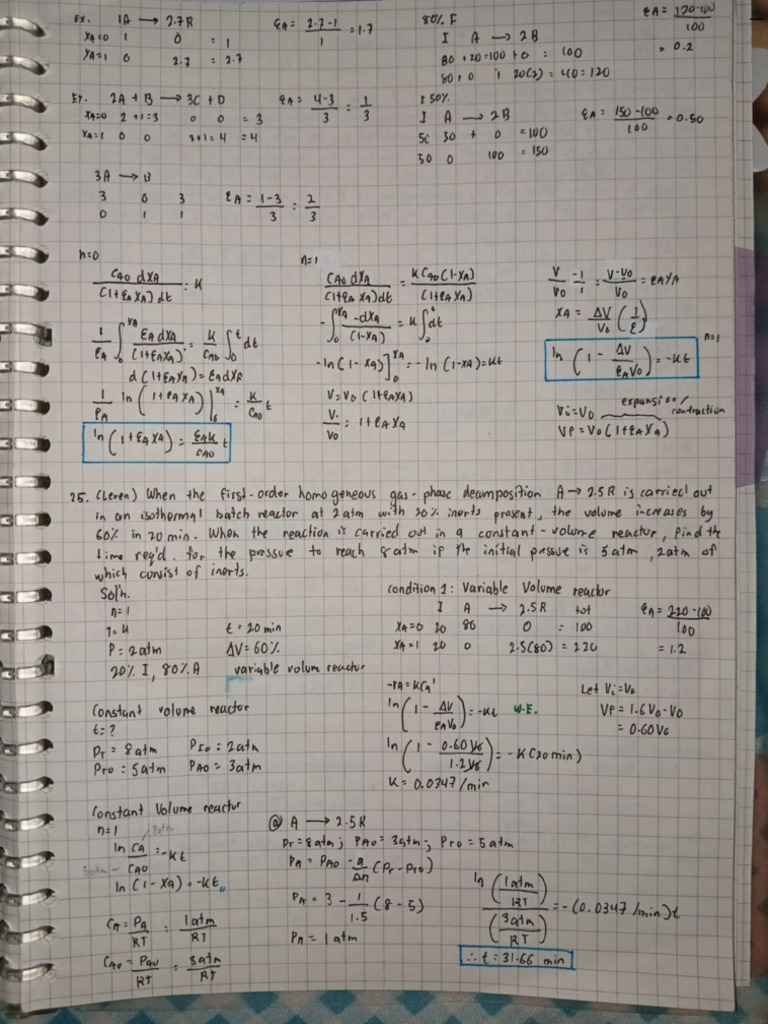 Ex. 1A → 2.7R
XA=0 1 0 = 1
XA=1 0 2.7 = 2.7
εA = (2.7-1)/1 = 1.7
80% F
I A → 2B
80 +20=100 + 0 = 100
80+0 + 20(2) = 40 = 120
εA = (120-100)/100
= 0.2
Ex. 2A + B → 3C + D
XA=0 2+1=3 0 0 = 3
XA=1 0 0 3+1=4 = 4
εA = (4-3)/3 = 1/3
I 50%
I A → 2B
50 50 + 0 = 100
50 0 100 = 150
εA = (150-100)/100 = 0.50
3A → B
3 0 3
0 1 1
εA = (1-3)/3 = 2/3
n=0
CAO dXA/((1+εA XA)dt) = K
1/εA ∫₀^XA εA dXA/(1+εAXA) = K/CAO ∫₀^t dt
d(1+εAXA) = εA dXA
1/εA ln(1+εAXA)|₀^XA = K/CAO t
ln(1+εAXA) = εAK/CAO t
n=1
CAO dXA/((1+εA XA)dt) = K CAO(1-XA)/(1+εAXA)
-∫₀^XA -dXA/(1-XA) = K∫₀^t dt
-ln(1-XA)]₀^XA = -ln(1-XA)=Kt
V=V0(1+εAXA)
V/V0 = 1+εAXA
V/V0 - 1/1 = (V-V0)/V0 = εAXA
XA = ΔV/V0 (1/ε)
n=1
ln(1 - ΔV/(εAV0)) = -Kt
expansion/contraction
Vi=V0
VF=V0(1+εAXA)
25. (Leven) When the first-order homogeneous gas-phase decomposition A → 2.5R is carried out
in an isothermal batch reactor at 2 atm with 20% inerts present, the volume increases by
60% in 20 min. When the reaction is carried out in a constant-volume reactor, find the
time req'd. for the pressure to reach 8 atm if the initial pressure is 5 atm, 2 atm of
which consist of inerts.
Sol'n.
n=1
P = 2 atm
20% I, 80% A
t = 20 min
ΔV = 60%
variable volum reactor
condition 1: Variable Volume reactor
I A → 2.5R tot
XA=0 20 80 0 = 100
XA=1 20 0 2.5(80) = 220
εA = (220-100)/100
= 1.2
-rA = KCA¹
ln(1 - ΔV/(εAV0)) = -Kt W.E.
ln(1 - 0.60V0/1.2V0) = -K(20 min)
K = 0.0347/min
Let Vi=V0
VF = 1.6V0-V0
= 0.60V0
Constant volume reactor
t=?
PT = 8 atm PIo = 2 atm
PTo = 5 atm PAO = 3 atm
Constant Volume reactor
n=1
ln CA/CAO = -Kt
ln(1-XA) = -Kt
CA = PA/RT = 1 atm/RT
CAO = PAO/RT = 3 atm/RT
@ A → 2.5R
PT = 8 atm; PAO = 3 atm; PTo = 5 atm
PA = PAO - a/Δn (PT - PTo)
PA = 3 - 1/1.5 (8-5)
PA = 1 atm
ln((1 atm/RT)/(3 atm/RT)) = -(0.0347/min)t
∴ t = 31.66 min